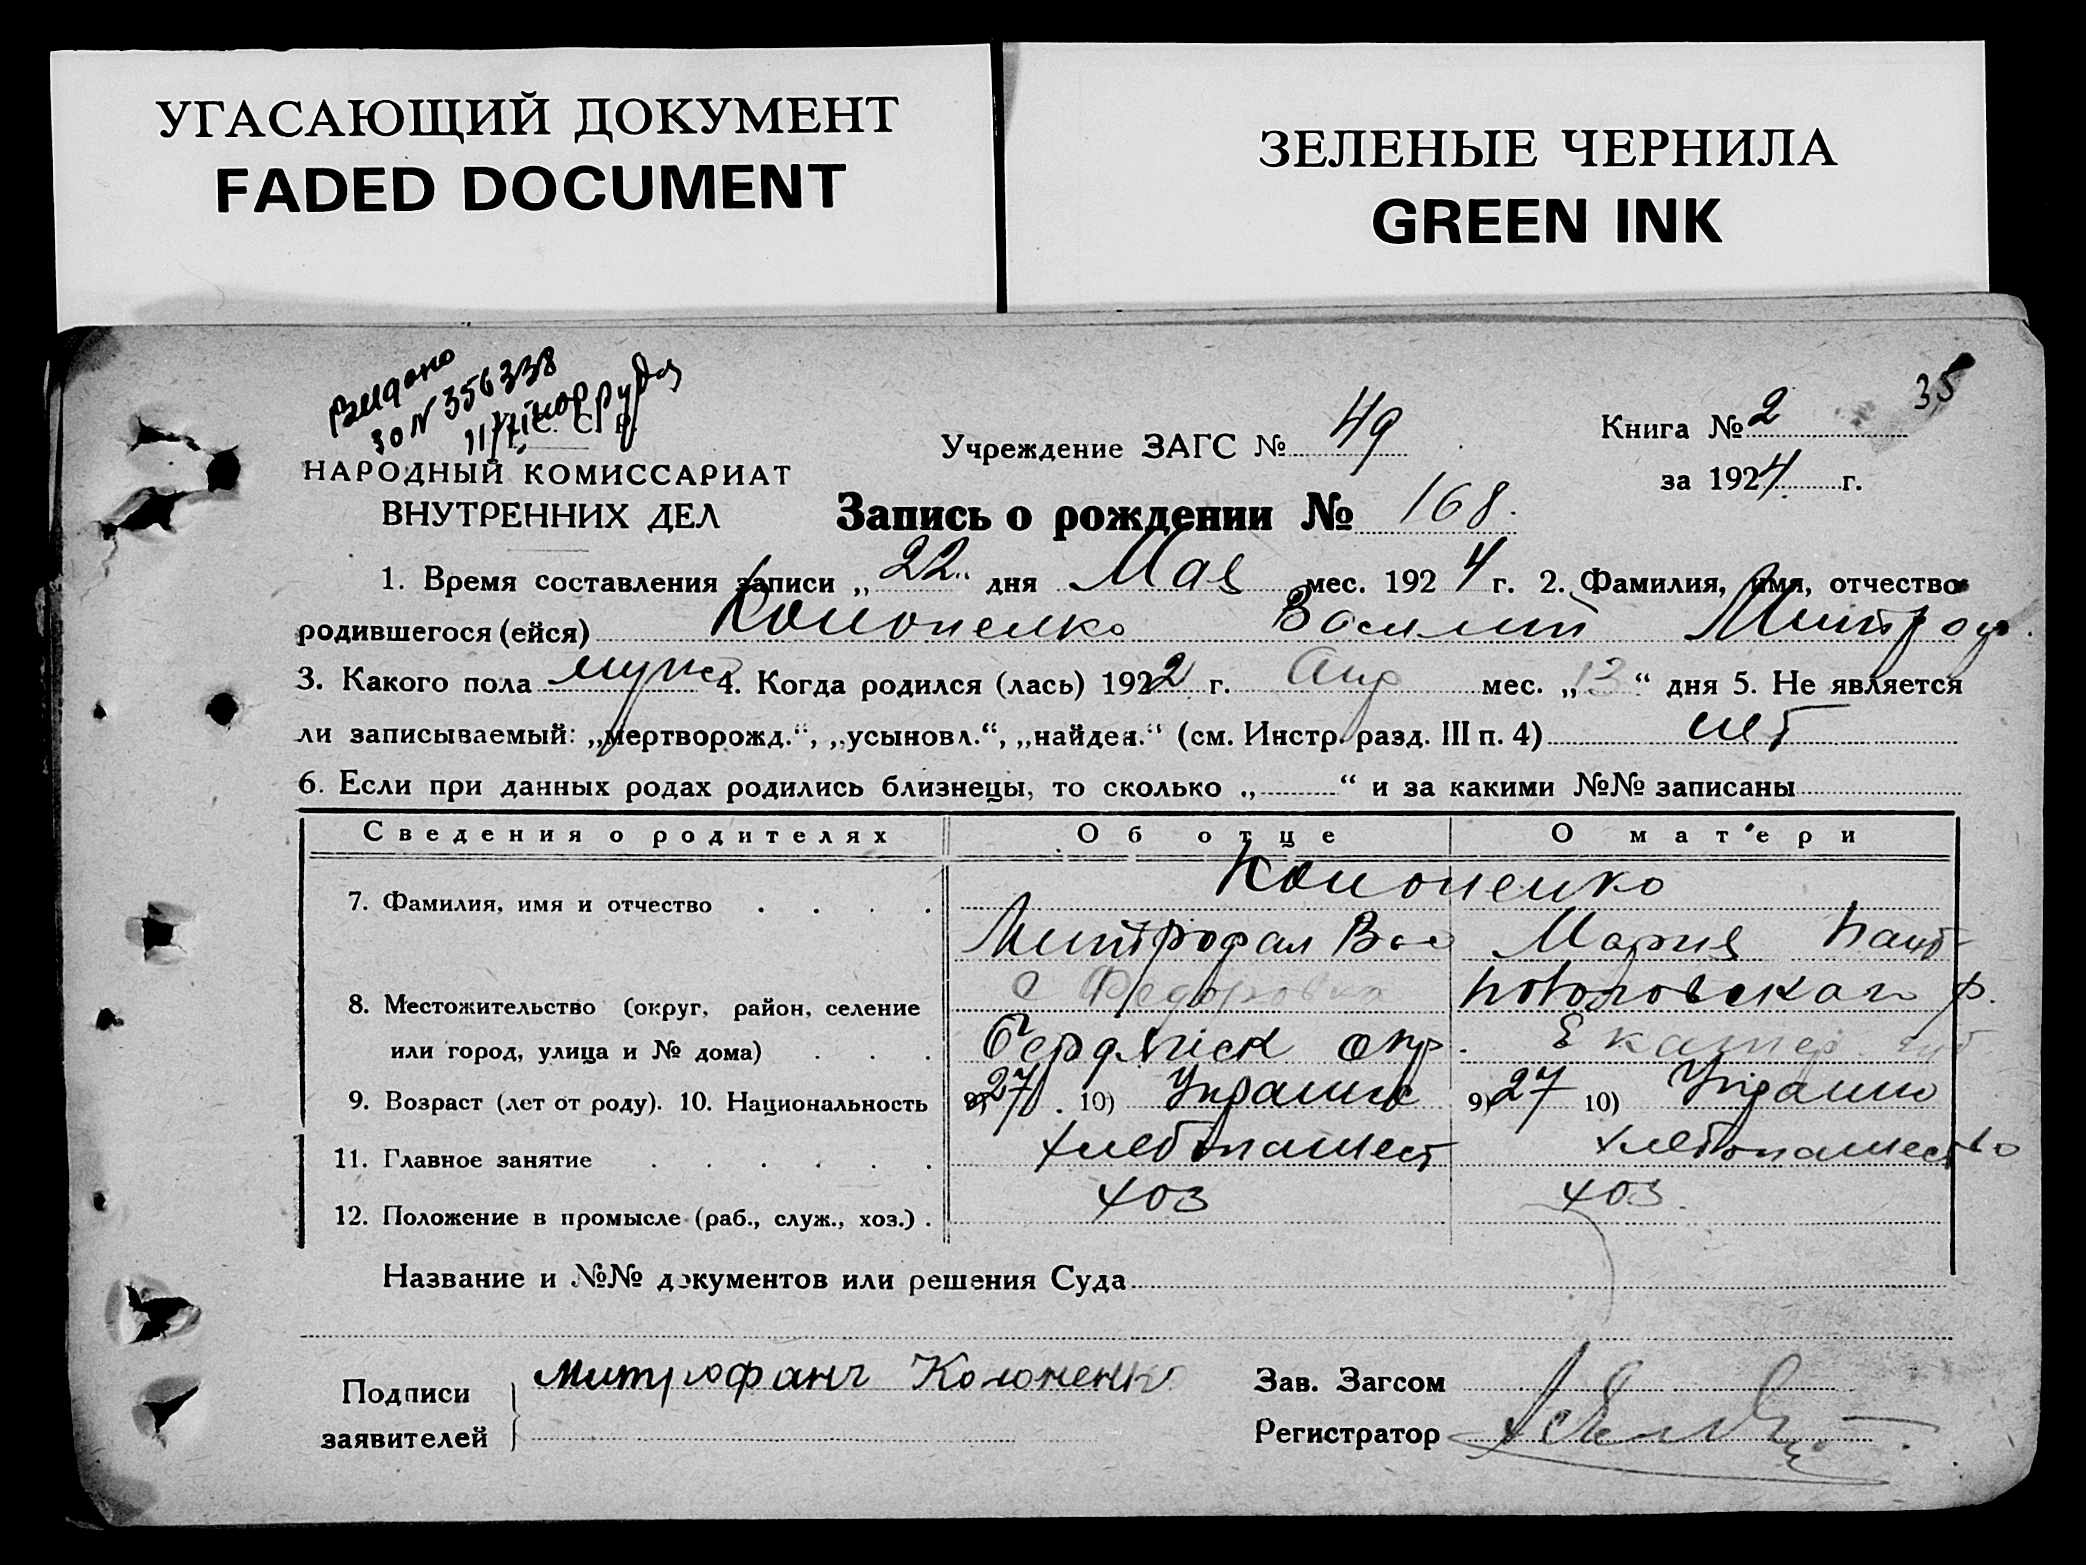 УГАСАЮЩИЙ ДОКУМЕНТ
FADED DOCUMENT
ЗЕЛЕНЫЕ ЧЕРНИЛА
GREEN INK
35
Видано
30 N 356338
Учреждение ЗАГС № 49
Книга № 2
за 1924 г.
НАРОДНЫЙ КОМИССАРИАТ
ВНУТРЕННИХ ДЕЛ
Запись о рождении № 168.
1. Время составления записи „22“ дня Мая мес. 1924 г. 2. Фамилия, имя, отчество
родившегося (ейся) Кононенко Василий Митроф.
3. Какого пола муж 4. Когда родился (лась) 1922 г. Апр мес. „13“ дня 5. Не является
ли записываемый: „мертворожд.“, „усыновл.“, „найден.“ (см. Инстр. разд. III п. 4) нет
6. Если при данных родах родились близнецы, то сколько „ “ и за какими №№ записаны
Сведения о родителях Об отце О матери
Кононенко
7. Фамилия, имя и отчество . . . .
Митрофан Вас Мария
с Федоровка
8. Местожительство (округ, район, селение
или город, улица и № дома) . . .
Бердянск окр. Екатер. губ
9. Возраст (лет от роду). 10. Национальность 9) 27 10) Украин 9) 27 10) Украин
11. Главное занятие . . . . . . хлебопашест хлебопашество
12. Положение в промысле (раб., служ., хоз.) . хоз хоз.
Название и №№ документов или решения Суда
Подписи
заявителей
Митрофанъ Кононенко
Зав. Загсом
Регистратор